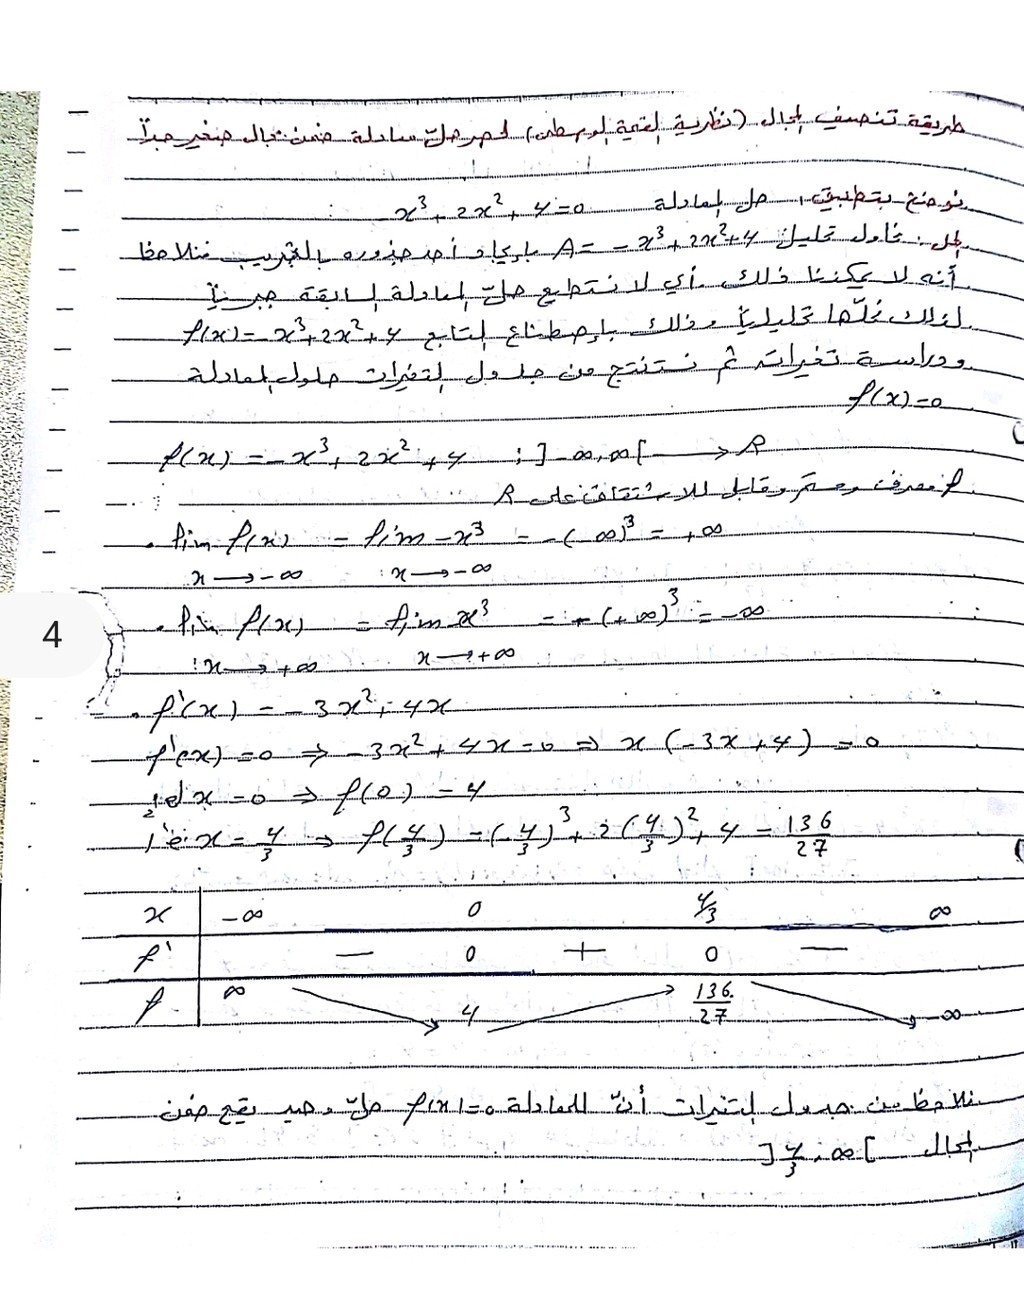 طريقة تنصيف المجال (نظرية القيمة الوسطى) لحصر حلّ معادلة ضمن مجال صغير جداً
نوضح بتطبيق، حل المعادلة -x³+2x²+4=0
الحل: نحاول تحليل A= -x³+2x²+4 بإيجاد أحد جذوره بالتجريب فنلاحظ
أنه لا يمكننا ذلك. أي لا نستطيع حلّ المعادلة السابقة جبرياً
لذلك نحلّها تحليلياً وذلك بإصطناع التابع f(x)=-x³+2x²+4
ودراسة تغيراته ثم نستنتج من جدول التغيرات حلول المعادلة
f(x)=0
f(x) = -x³+2x²+4 ; ]-∞,∞[ → R
f معرف ومستمر وقابل للاشتقاق على R
. lim f(x) = lim -x³ = -(-∞)³ = +∞
x→-∞ x→-∞
. lim f(x) = lim -x³ = -(+∞)³ = -∞
x→+∞ x→+∞
. f'(x) = -3x²+4x
f'(x)=0 ⇒ -3x²+4x=0 ⇒ x(-3x+4)=0
إما x=0 ⇒ f(0)=4
أو x=4/3 ⇒ f(4/3) = -(4/3)³+2(4/3)²+4 = 136/27
x -∞ 0 4/3 ∞
f' - 0 + 0 -
f ∞ 4 136/27 -∞
نلاحظ من جدول التغيرات أنّ للمعادلة f(x)=0 حلّ وحيد يقع ضمن
المجال ]4/3,∞[
4